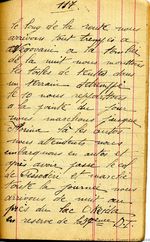 167
le long de la route nous
arrivons tout trempés à
à la tombée
de la nuit nous montons
les toiles de tentes dans
un terrain détrempé
et le nous repartons
à la pointe du jour
nous marchons jusque
là les autos
nous attendent nous
embarquons en autos et
après avoir
de et marché
toute la journée nous
arrivons de nuit au
près du lac Okrida
en reserve de